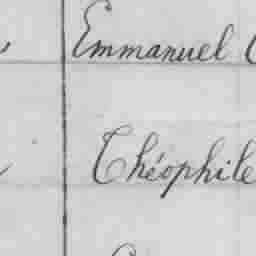 Emmanuel
Théophile